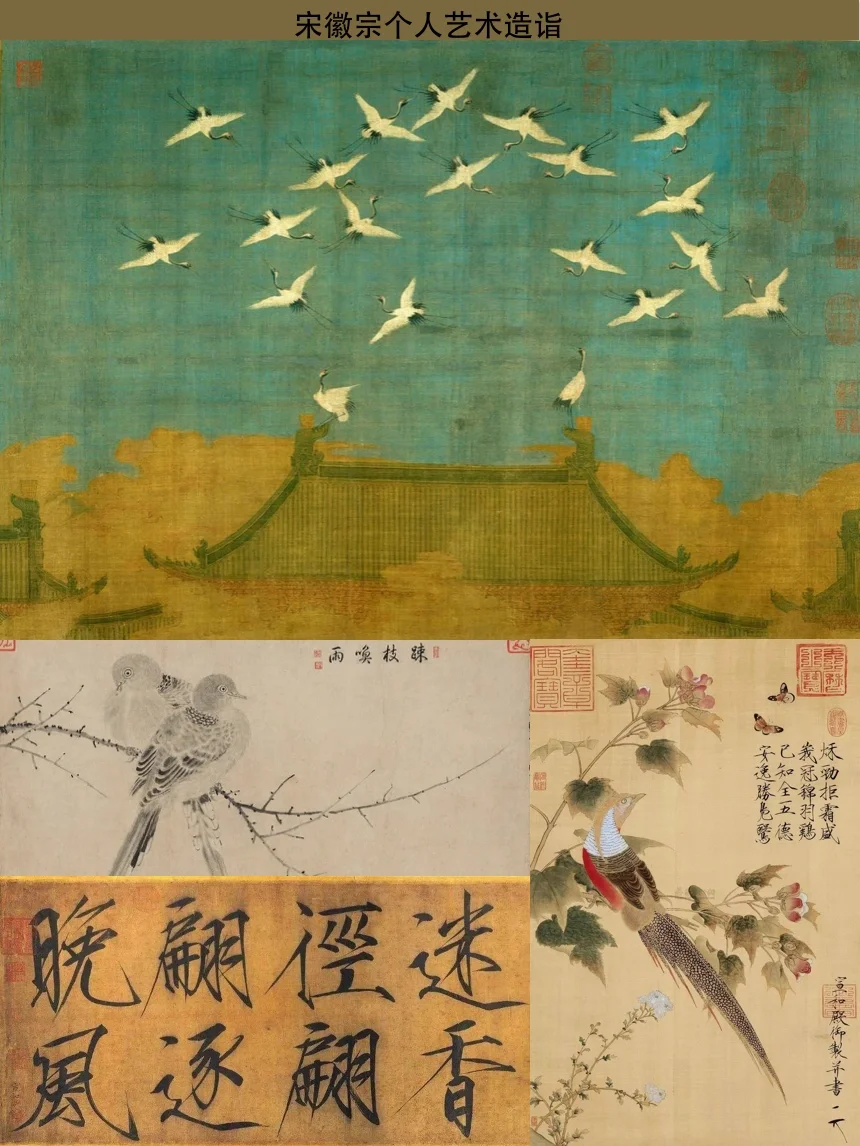 宋徽宗个人艺术造诣
踈枝喚雨
秋勁拒霜盛
峩冠錦羽鷄
已知全五德
安逸勝鳧鷖
宣和殿御製并書
迷香
徑翩
翩逐
晚風